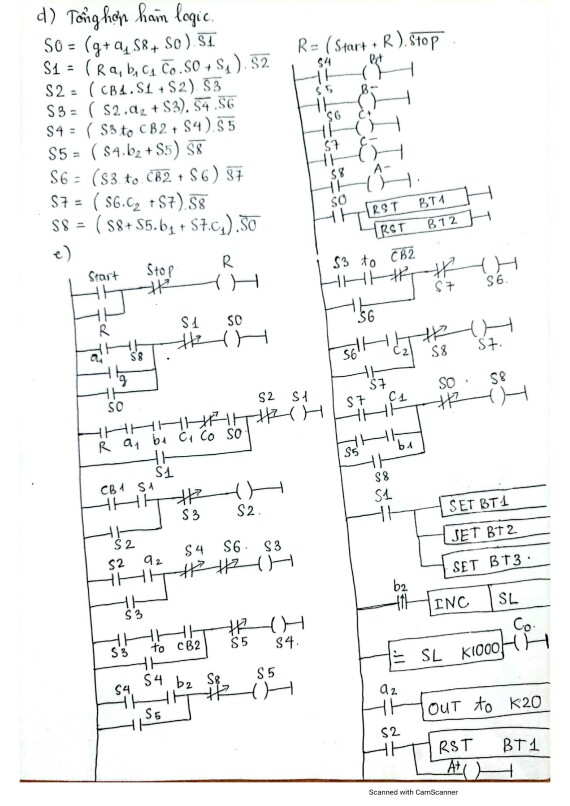 d) Tổng hợp hàm logic.
S0 = (g + a₁ S8 + S0) . \overline{S1}
S1 = (R a₁ b₁ c₁ \overline{C₀} . S0 + S₁) . \overline{S2}
S2 = (CB1 . S1 + S2) . \overline{S3}
S3 = (S2 . a₂ + S3) . \overline{S4} . \overline{S6}
S4 = (S3 t₀ CB2 + S4) . \overline{S5}
S5 = (S4 . b₂ + S5) \overline{S8}
S6 = (S3 t₀ . \overline{CB2} + S6) \overline{S7}
S7 = (S6 . C₂ + S7) . \overline{S8}
S8 = (S8 + S5 . b₁ + S7 . C₁) . \overline{S0}
R = (Start + R) . \overline{Stop}
S4 B+
S5 B−
S6 C+
S7 C−
S8 A−
S0 RST BT1
RST BT2
e)
Start Stop R
R
a₁ S8 S1 S0
g
S0
R a₁ b₁ C₁ C₀ S0 S2 S1
S1
CB1 S1 S3 S2.
S2
S2 a₂ S4 S6. S3
S3
S3 t₀ CB2 S5 S4.
S4
S4 b₂ S8 S5
S5
S3 t₀ \overline{CB2} S7 S6.
S6
S6 C₂ S8 S7.
S7
S7 C₁ S0. S8
S5 b₁
S8
S1 SET BT1
SET BT2
SET BT3.
b₂ INC SL
= SL K1000 C₀.
a₂ OUT t₀ K20
S2 RST BT1
A+
Scanned with CamScanner